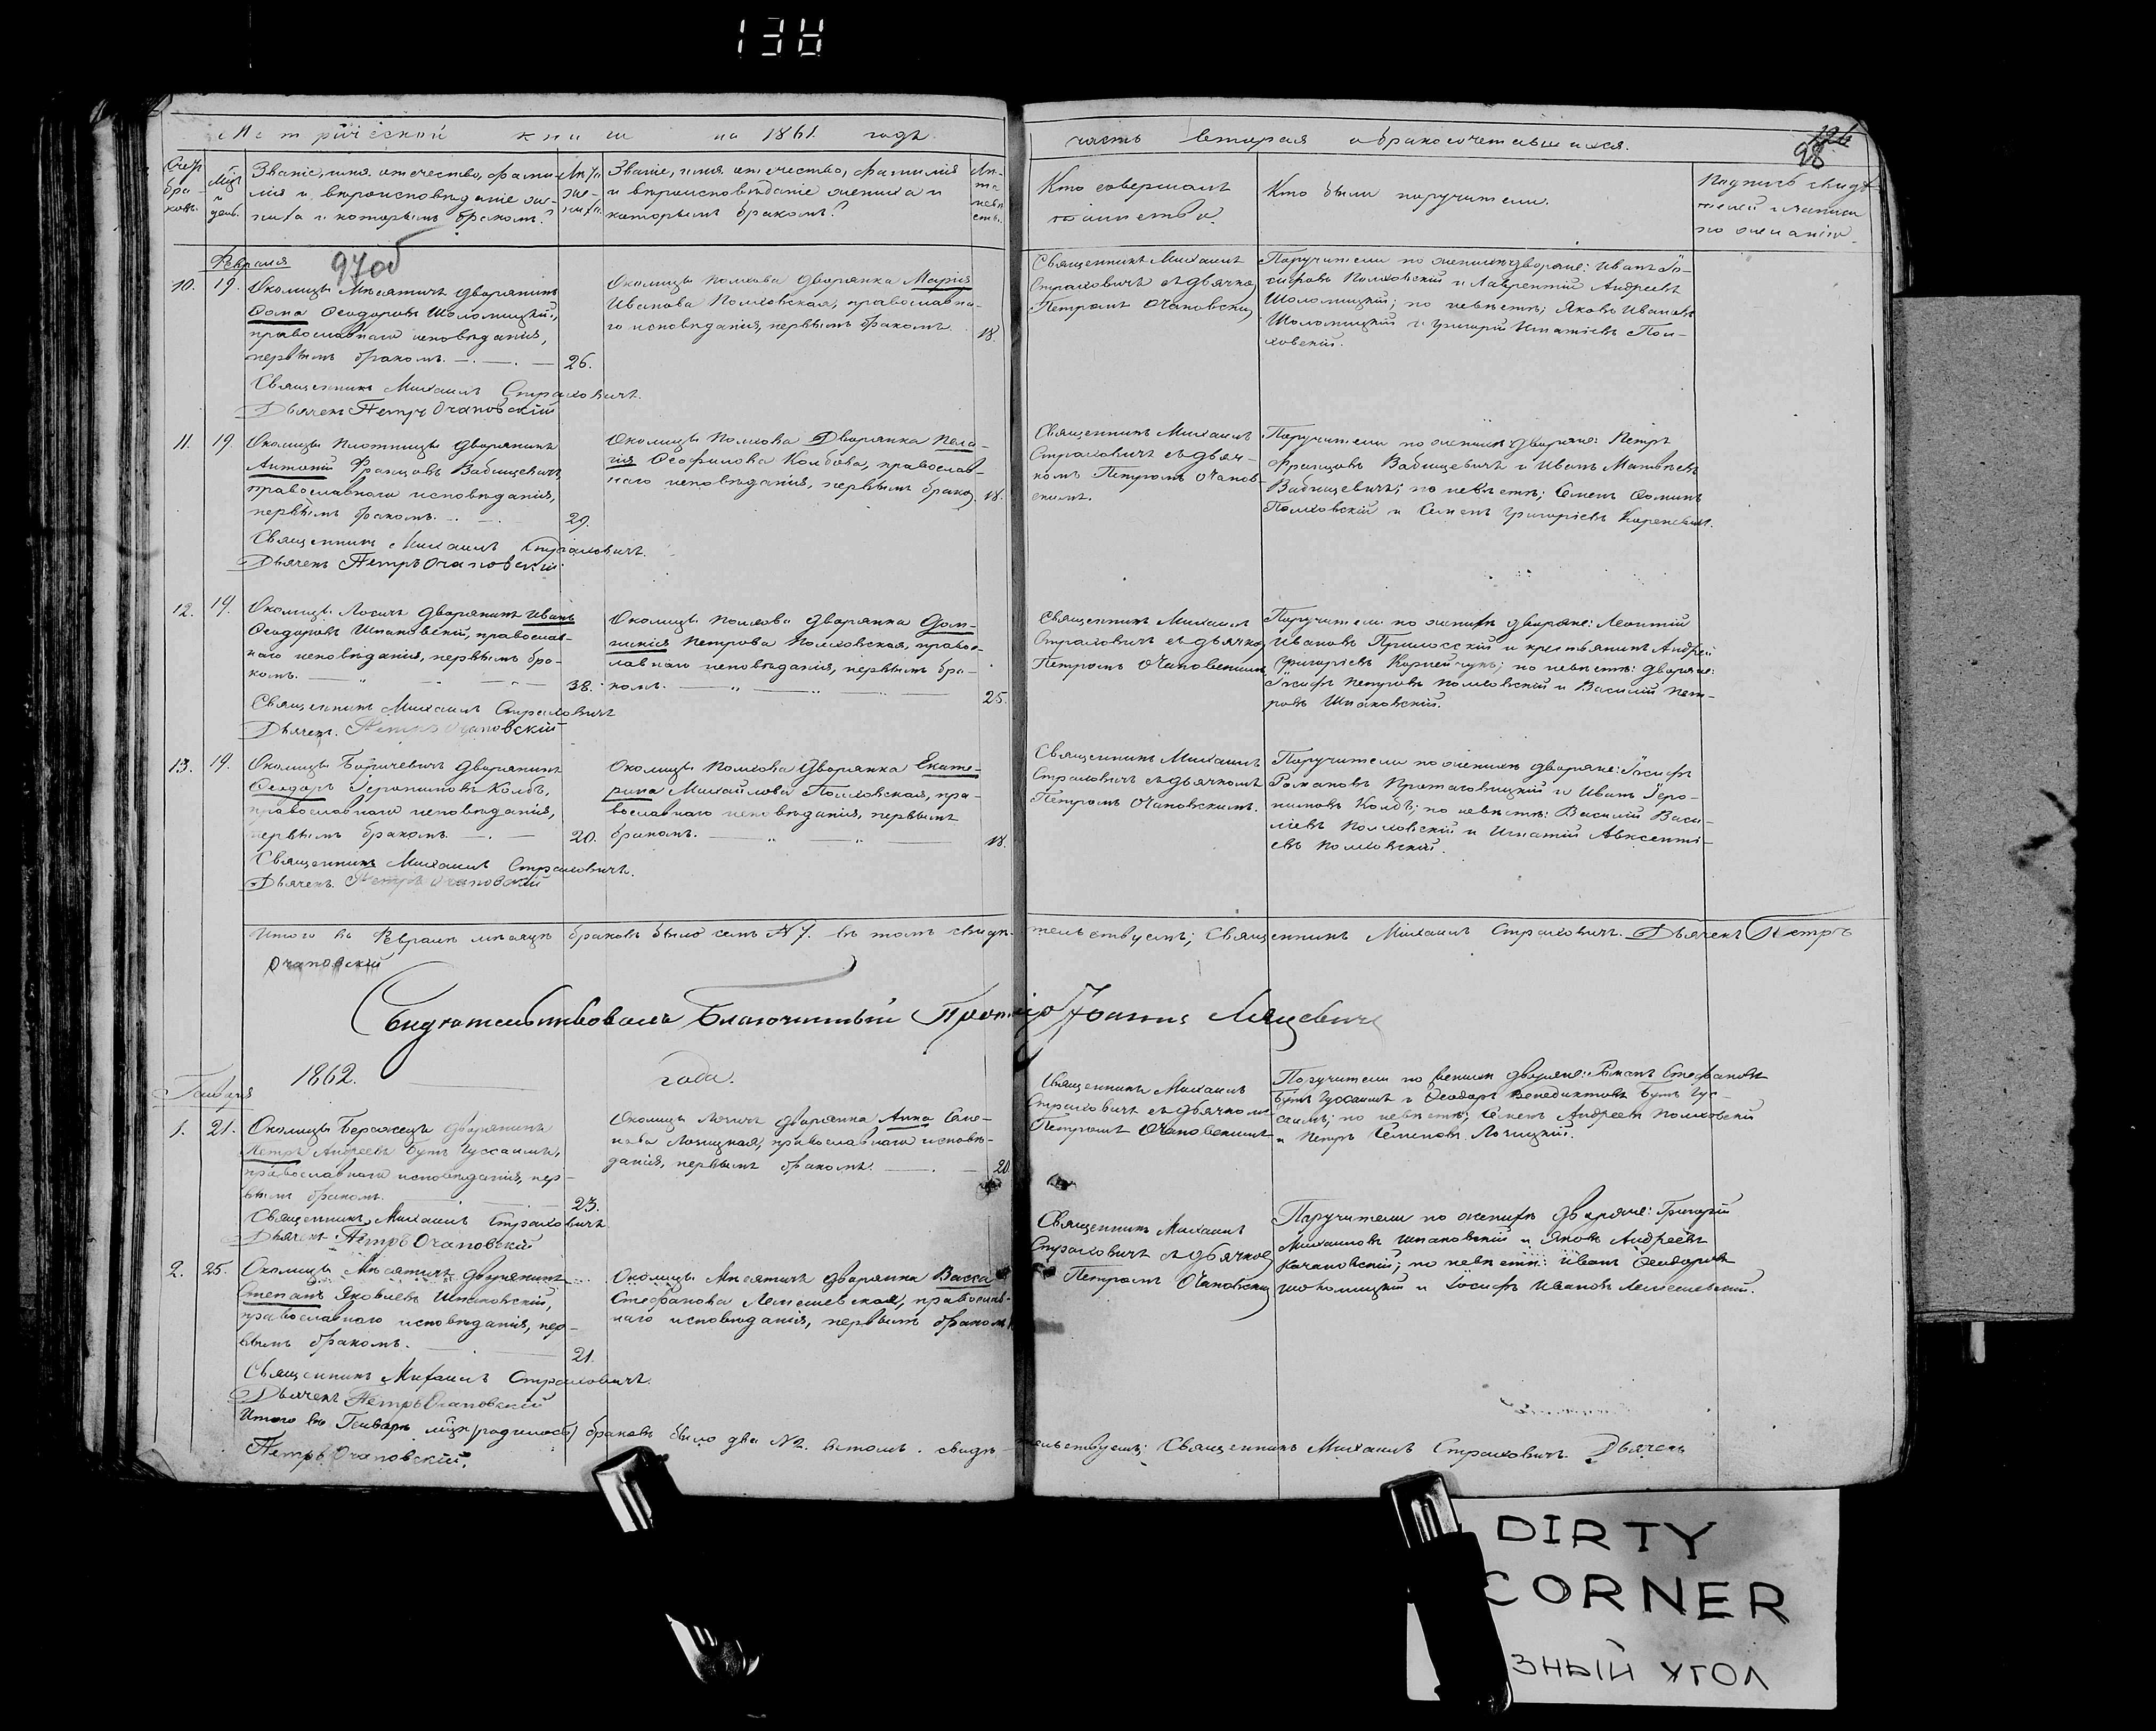 138
Метрической книги на 1861 годъ
часть вторая о бракосочетавшихся.
126
98
Счетъ браковъ.
Мцъ и день.
Званіе, имя, отчество, фами-
лія и вѣроисповѣданіе же-
ниха и которымъ бракомъ?
Лѣта
же-
ниха.
Званіе, имя, отчество, фамилія
и вѣроисповѣданіе невѣсты и
которымъ бракомъ?
Лѣ-
та
невѣ
сты.
Кто совершалъ
таинство.
Кто были поручители.
Подпись свидѣ-
телей записи
по желанію.
Февраля
97об
10. 19. Околицы Мѣсятичъ дворянинъ
Ѳома Ѳеодоровъ Шоломицкій,
православнаго исповѣданія,
первымъ бракомъ. 26.
Священникъ Михаилъ Страховичъ.
Дьячекъ Петръ Очаповскій
Околицы Полхова дворянка Марія
Иванова Полховская, православна-
го исповѣданія, первымъ бракомъ. 18.
Священникъ Михаилъ
Страховичъ съ дьячко
Петромъ Очаповски
Поручители по женихѣ дворяне: Иванъ Іо-
сифовъ Полховскій и Лаврентій Андреевъ
Шоломицкій; по невѣстѣ; Яковъ Ивановъ
Шоломицкій и Григорій Игнатіевъ Пол-
ховскій.
11. 19. Околицы Плотницы дворянинъ
Антоній Францовъ Вабищевичъ,
православнаго исповѣданія,
первымъ бракомъ. 29.
Священникъ Михаилъ Страховичъ.
Дьячекъ Петръ Очаповскій
Околицы Полхова Дворянка Пела-
гія Ѳеофилова Колбова, православ-
наго исповѣданія, первымъ брако 18.
Священникъ Михаилъ
Страховичъ съ дьяч-
комъ Петромъ Очапов-
скимъ.
Поручители по женихѣ дворяне: Петръ
Францовъ Вабищевичъ и Иванъ Матвѣевъ
Вабищевичъ; по невѣстѣ; Семенъ Ѳоминъ
Полховскій и Семенъ Григоріевъ
12. 19. Околицы Лосичъ дворянинъ Иванъ
Ѳеодоровъ Шпаковскій, православ-
наго исповѣданія, первымъ бра-
комъ. 38.
Священникъ Михаилъ Страховичъ
Дьячекъ Петръ Очаповскій
Околицы Полхова дворянка Дом-
никія Петрова Полховская, право-
славнаго исповѣданія, первымъ бра-
комъ. 25.
Священникъ Михаилъ
Страховичъ съ дьячко
Петромъ Очаповскимъ
Поручители по женихѣ дворяне: Леонтій
Ивановъ и крестьянинъ Андрей
Григоріевъ Корнейчукъ; по невѣстѣ: дворяне:
Іосифъ Петровъ Полховскій и Василій Пет-
ровъ Шпаковскій.
13. 19. Околицы Боричевичъ дворянинъ
Ѳеодоръ Іеронимовъ Колбъ,
православнаго исповѣданія,
первымъ бракомъ. 20.
Священникъ Михаилъ Страховичъ.
Дьячекъ Петръ Очаповскій
Околицы Полхова дворянка Екате-
рина Михайлова Полховская, пра-
вославнаго исповѣданія, первымъ
бракомъ. 18.
Священникъ Михаилъ
Страховичъ съ дьячкомъ
Петромъ Очаповскимъ.
Поручители по женихѣ дворяне: Іосифъ
Романовъ Протасовицкій и Иванъ Іеро-
нимовъ Колбъ; по невѣстѣ: Василій Васи-
ліевъ Полховскій и Игнатій Авксенті-
евъ Полховскій.
Итого въ Февралѣ мѣсяцѣ браковъ было семь №7. въ томъ свидѣ-тельствуемъ; Священникъ Михаилъ Страховичъ. Дьячекъ Петръ
Очаповскій
Свидѣтельствовалъ Благочинный Протоіер Іоаннъ
1862. года.
Генваря
1. 21. Околицы Бережецъ дворянинъ
Петръ Андреевъ Бутъ Гуссаимъ,
православнаго исповѣданія, пер-
вымъ бракомъ. 23.
Священникъ Михаилъ Страховичъ
Дьячекъ Петръ Очаповскій
Околицы Лосичъ дворянка Анна Семе-
нова Лосицкая, православнаго исповѣ-
данія, первымъ бракомъ. 20
Священникъ Михаилъ
Страховичъ съ дьячкомъ
Петромъ Очаповскимъ
Поручители по женихѣ дворяне: Романъ Стефановъ
Бутъ Гуссаимъ и Ѳеодоръ Венедиктовъ Бутъ Гус-
саимъ; по невѣстѣ; Семенъ Андреевъ Полховскій
и Петръ Семеновъ Лосицкій.
2. 25. Околицы Мѣсятичъ дворянинъ
Степанъ Яковлевъ Шпаковскій,
православнаго исповѣданія, пер-
вымъ бракомъ. 21.
Священникъ Михаилъ Страховичъ.
Дьячекъ Петръ Очаповскій
Околицы Мѣсятичъ дворянка Васса
Стефанова Лемешевская, православ-
наго исповѣданія, первымъ бракомъ
Священникъ Михаилъ
Страховичъ съ дьячко
Петромъ Очаповски
Поручители по женихѣ дворяне: Григорій
Михаиловъ Шпаковскій и Яковъ Андреевъ
Качановскій; по невѣстѣ: Иванъ Ѳеодоровъ
Шоломицкій и Іосифъ Ивановъ Лемешевскій.
Итого въ Генварѣ мцѣ (родилось) браковъ было два №2. въ томъ свидѣ-тельствуемъ; Священникъ Михаилъ Страховичъ. Дьячекъ
Петръ Очаповскій.
DIRTY
CORNER
ЗНЫЙ УГОЛ